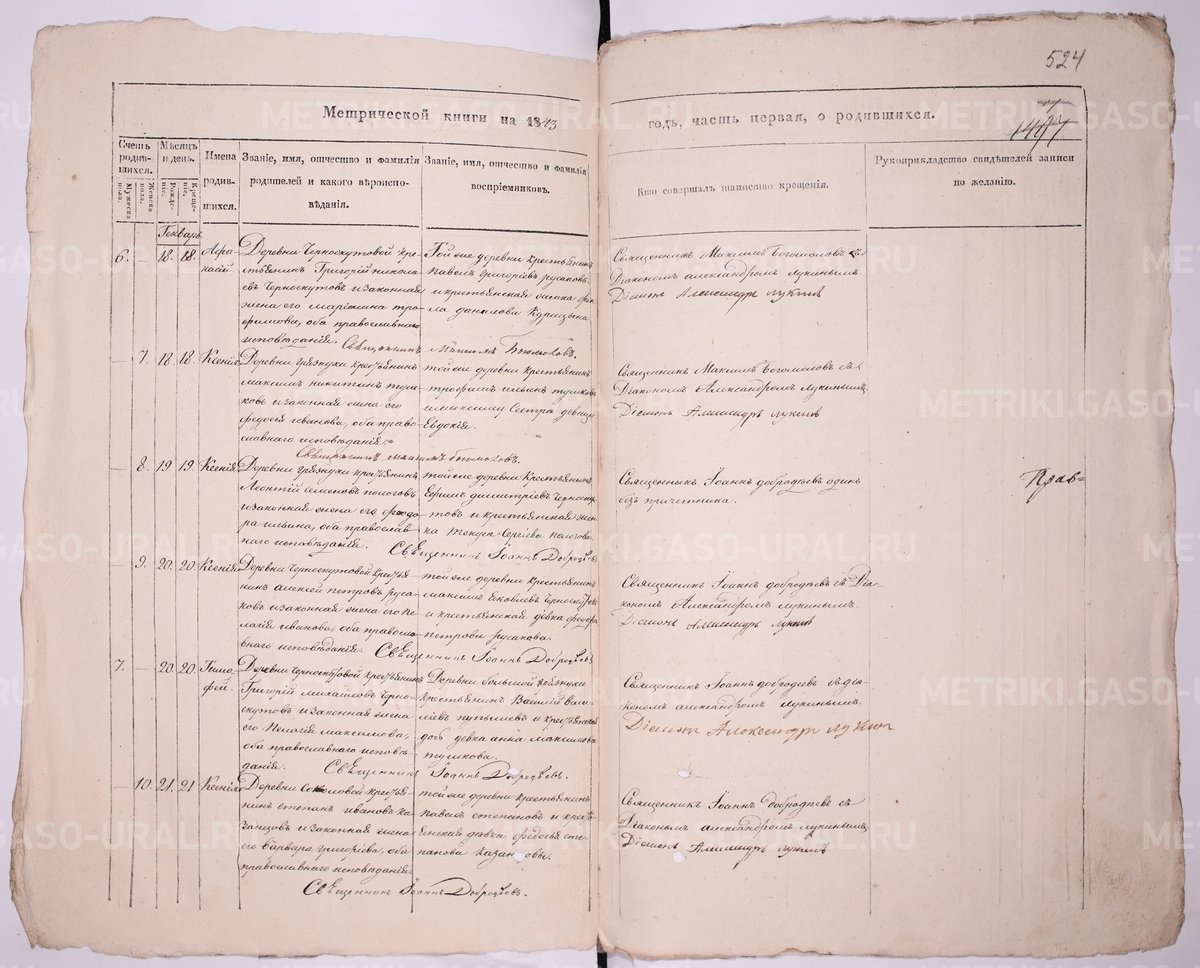 524
Метрической книги на 1843
годъ, часть первая, о родившихся.
Счетъ родившихся.
Мужеска пола.
Женска пола.
Мѣсяцъ и день.
Рожденіе.
Крещеніе.
Имена родившихся.
Званіе, имя, отчество и фамилія
родителей и какого вѣроиспо-
вѣданія.
Званіе, имя, отчество и фамилія
воспріемниковъ.
Кто совершалъ таинство крещенія.
Рукоприкладство свидѣтелей записи
по желанію.
Генварь
6. — 18. 18.
Деревни Черноскутовой кре-
стьянинъ Григорій никола-
евъ Черноскутовъ и законная
жена его
фимова, оба православнаго
исповѣданія.
Той же деревни крестьянинъ
павелъ григорьевъ русаковъ
и крестьянская
данилова Курицына
Священникъ Максимъ Богомоловъ съ
Діакономъ александромъ лукинымъ
Діаконъ Александръ лукинъ
— 7. 18. 18. Ксенія
Деревни грязнухи крестьянинъ
максимъ никитинъ тушко-
ковъ и законная жена его
федосья иванова, оба право-
славнаго исповѣданія.
той же деревни крестьянинъ
трофимъ ильинъ тушковъ
и максиму сестра девица
Евдокія.
Священникъ Максимъ Богомоловъ съ
Діакономъ Александромъ Лукинымъ
Діаконъ Александръ лукинъ
— 8. 19 19. Ксенія
Деревни грязнухи крестьянинъ
Леонтій семеновъ пологовъ
и законная жена его феодо-
ра ильина, оба православ-
наго исповѣданія.
той же деревни Крестьянинъ
Ефимъ димитріевъ Черноску-
товъ и крестьянская жен-
ка Сергіева пологова
Священникъ Іоаннъ Добродѣевъ
Священникъ Іоаннъ добродѣевъ одинъ
безъ причетника.
— 9. 20. 20. Ксенія
Деревни Черноскутовой крестья-
нинъ алексей петровъ руса-
ковъ и законная жена его пе-
лагія иванова, оба правосла-
внаго исповѣданія.
той же деревни крестьянинъ
максимъ яковлевъ Черноскутовъ
и крестьянская дѣвка федора
петрова русакова.
Священникъ Іоаннъ Добродѣевъ
Священникъ Іоаннъ добродѣевъ съ Діа-
кономъ Александромъ лукинымъ.
Діаконъ Александръ лукинъ
7. — 20. 20. Тимо-
фей.
Деревни Черноскутовой крестьянинъ
Григорій михайловъ Черно-
скутовъ и законная жена
его Пелагія максимова,
оба православнаго исповѣ-
данія.
Деревни большой грязнухи
крестьянинъ Василій васи-
ліевъ и крестьянская
дѣвка анна максимова
тушкова.
Священникъ Іоаннъ Добродѣевъ.
Священникъ Іоаннъ добродеевъ съ діа-
кономъ александромъ лукинымъ.
Діаконъ Александръ лукинъ
— 10. 21. 21 Ксенія
Деревни Соколовой крестья-
нинъ степанъ ивановъ ка-
занцовъ и законная жена
его варвара григоріева, оба
православнаго исповѣданія.
той же деревни крестьянинъ
павелъ степановъ и кресть-
янская дѣвка федосья сте-
панова казанцовы.
Священникъ Іоаннъ Добродѣевъ.
Священникъ Іоаннъ Добродѣевъ съ
Діакономъ александромъ лукинымъ
Діаконъ Александръ лукинъ
METRIKI.GASO-URAL.RU